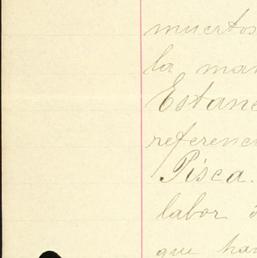 muertos
la man
Estanc
referenc
Pisca.
labor
que han